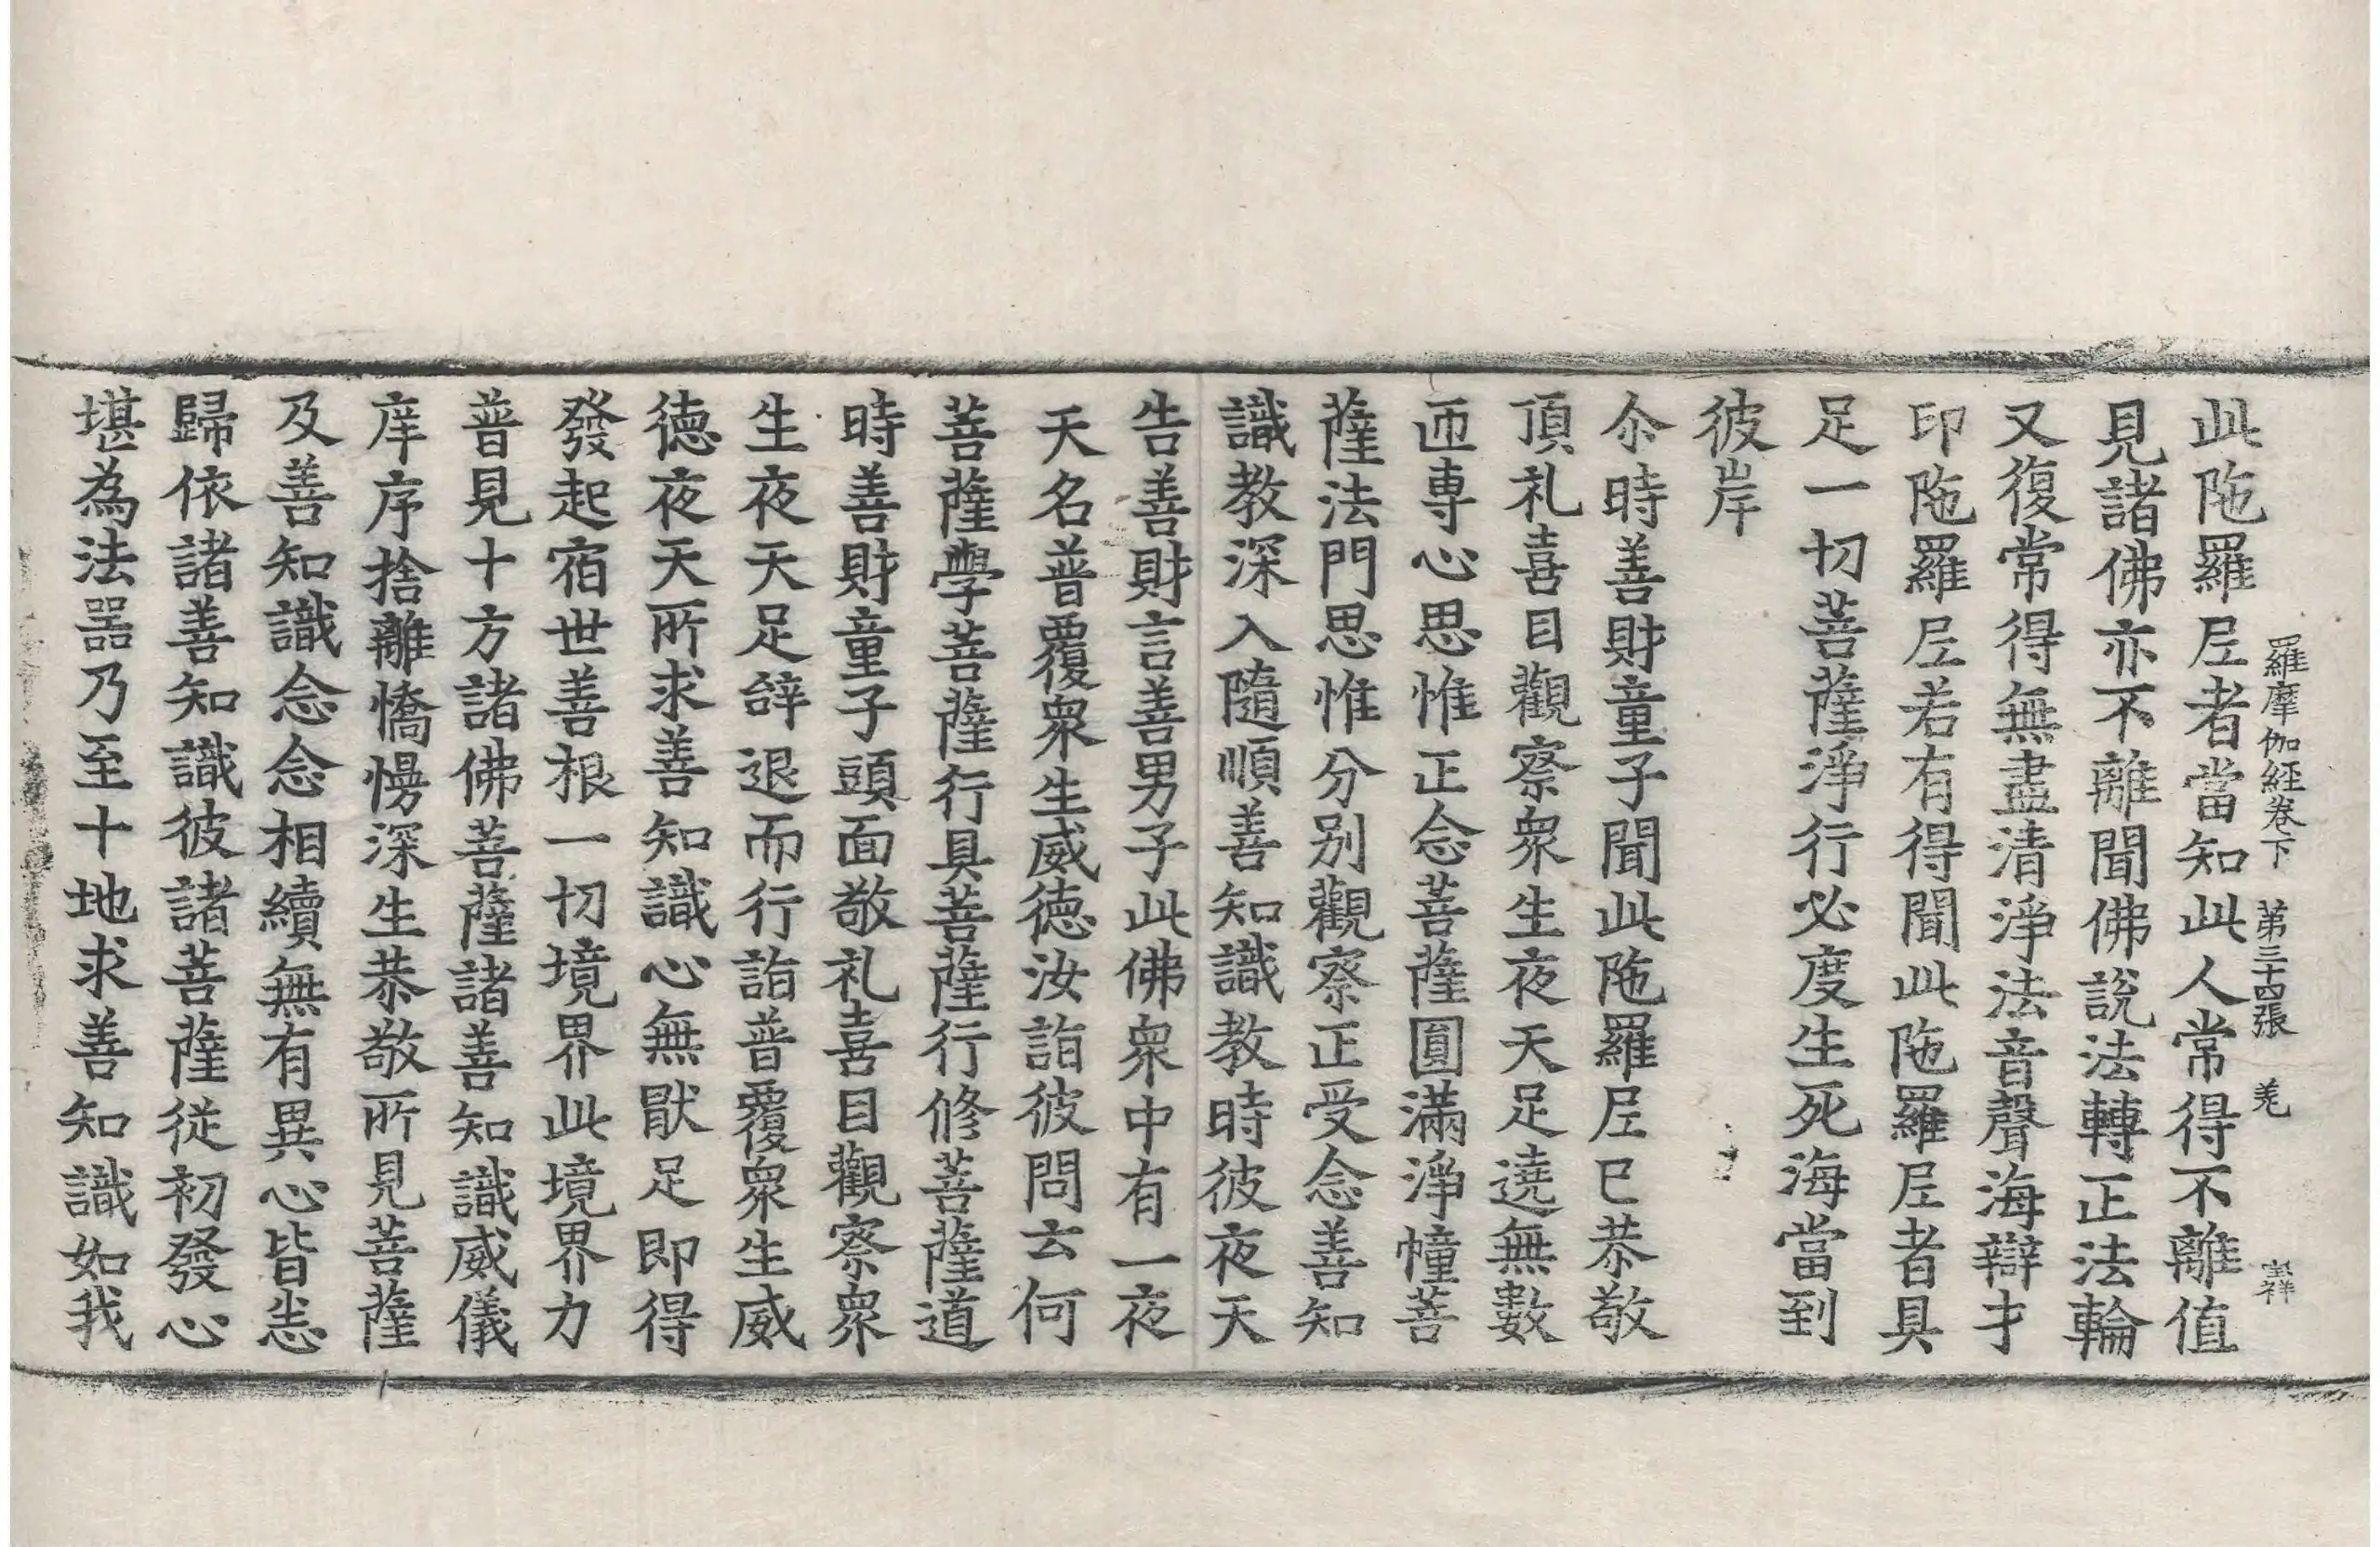 羅摩伽經卷下 第三十四張 羌 宝祥
此陁羅𡰱者當知此人常得不離值
見諸佛亦不離聞佛說法轉正法輪
又復常得無盡清淨法音聲海辯才
印陁羅𡰱若有得聞此陁羅𡰱者具
足一切菩薩淨行必度生死海當到
彼岸
尒時善財童子聞此陁羅𡰱已恭敬
頂礼喜目觀察衆生夜天足遶無數
匝専心思惟正念菩薩圓滿淨幢菩
薩法門思惟分别觀察正受念善知
識教深入隨順善知識教時彼夜天
告善財言善男子此佛衆中有一夜
天名普覆衆生威德汝詣彼問云何
菩薩學菩薩行具菩薩行修菩薩道
時善財童子頭面敬礼喜目觀察衆
生夜天足辝退而行詣普覆衆生威
德夜天所求善知識心無猒足即得
發起宿世善根一切境界此境界力
普見十方諸佛菩薩諸善知識威儀
庠序捨離憍慢深生恭敬所見菩薩
及善知識念念相續無有異心皆悉
歸依諸善知識彼諸菩薩從初發心
堪為法器乃至十地求善知識如我